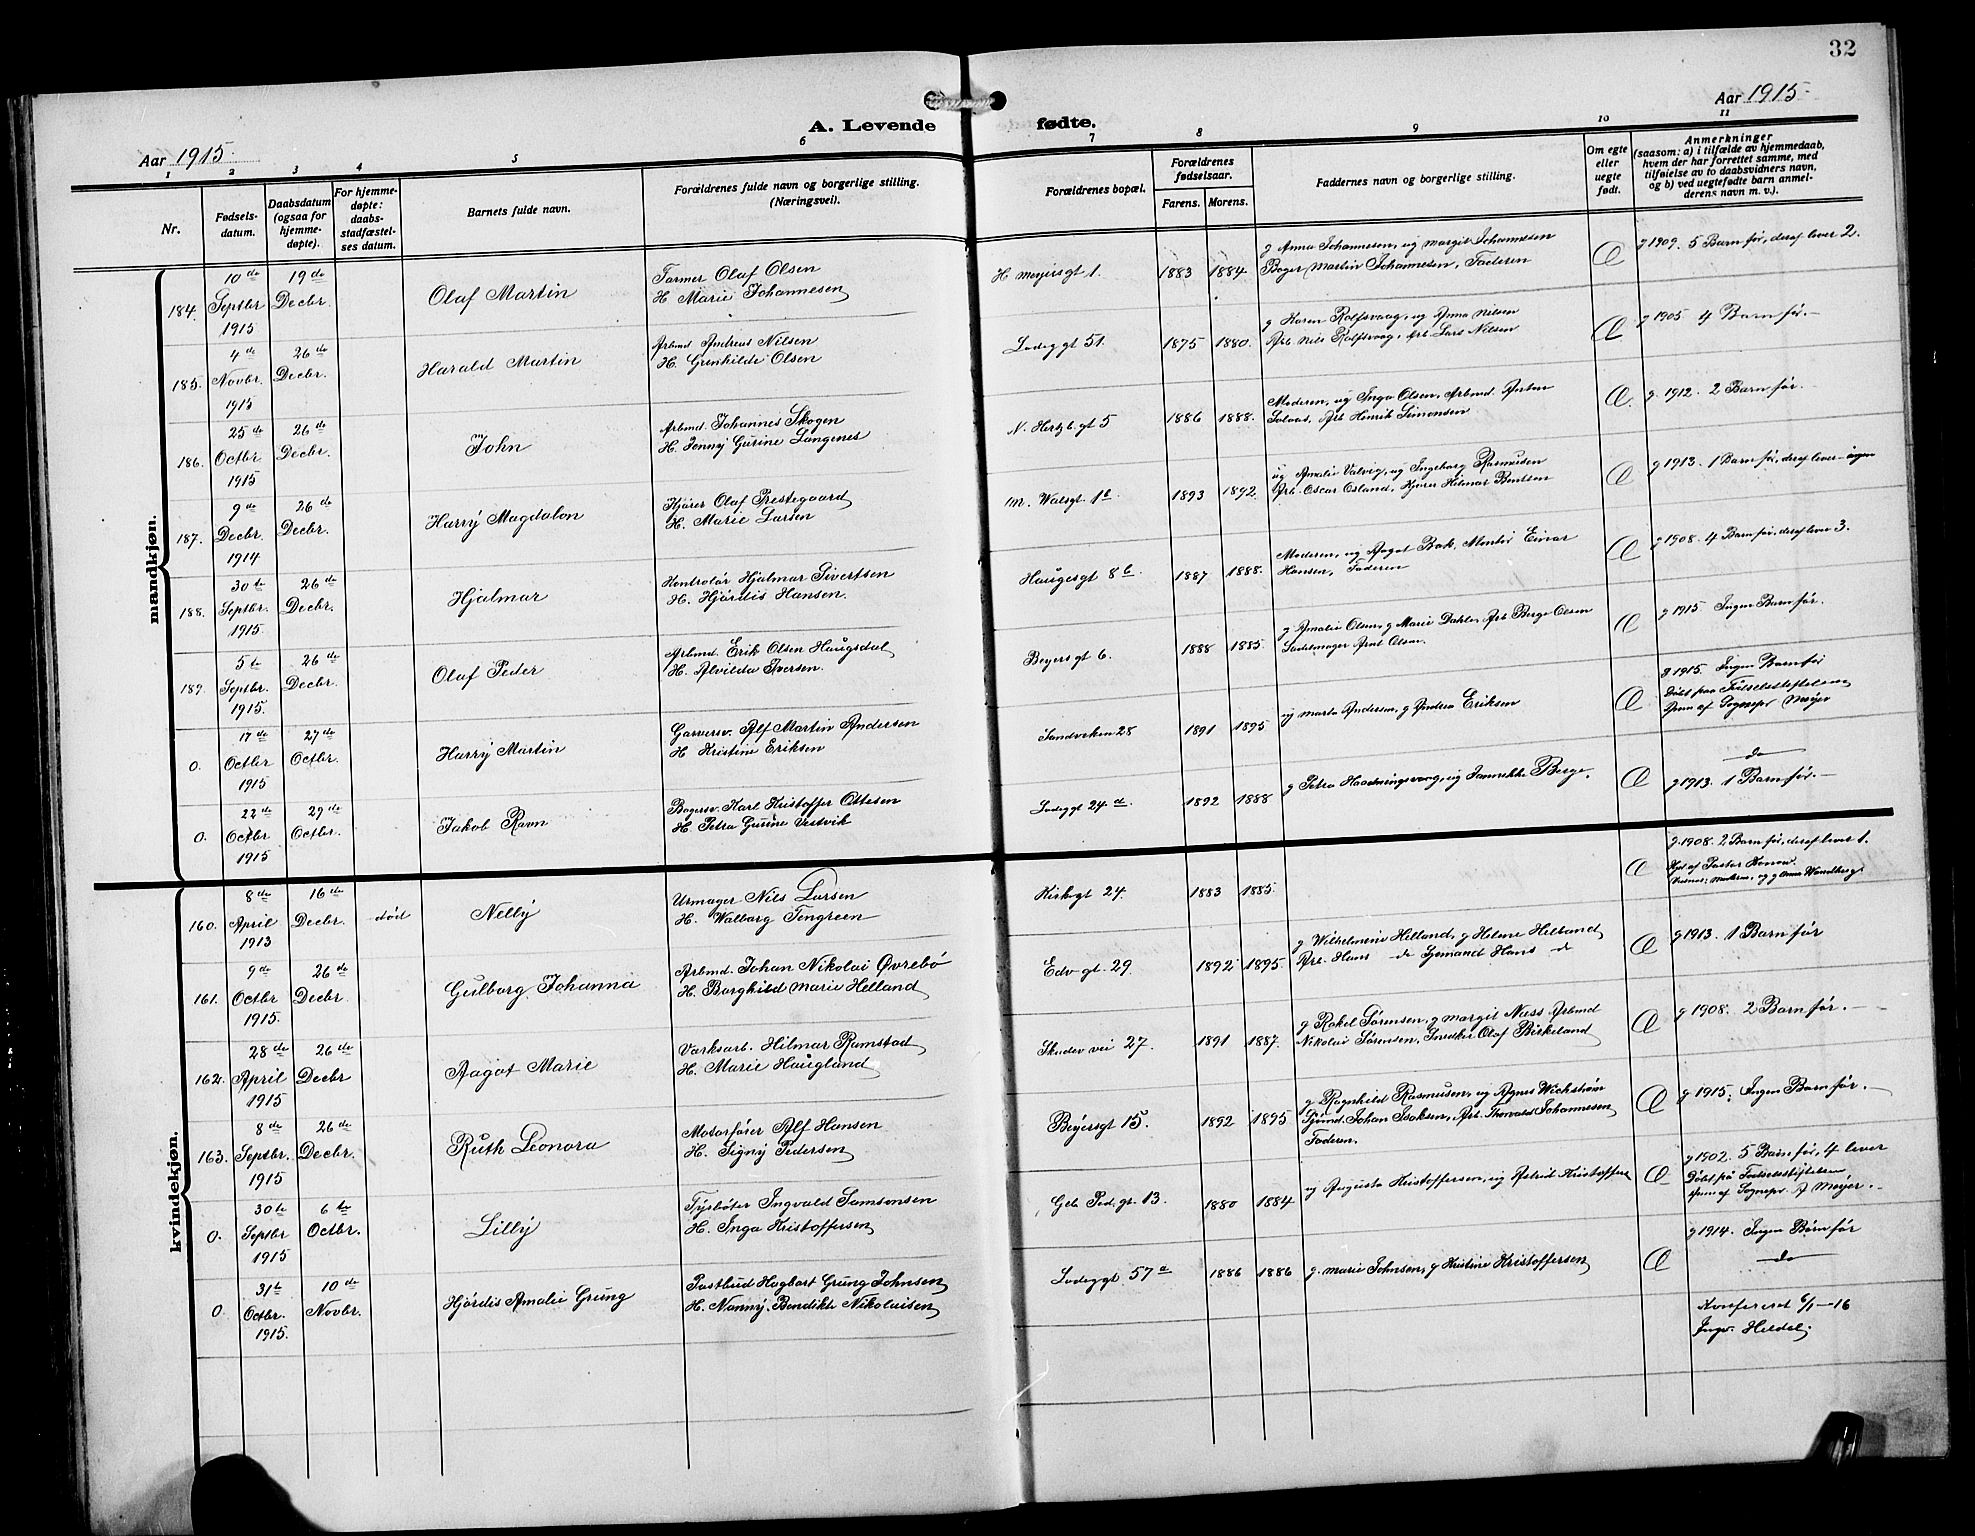 32
Aar 1915.
A. Levende fødte.
Aar 1915.
1 2 3 4 5 6 7 8 9 10 11
Nr.
Fødsels-
datum.
Daabsdatum
(ogsaa for
hjemme-
døpte).
For hjemme-
døpte:
daabs-
stadfæstel-
ses datum.
Barnets fulde navn.
Forældrenes fulde navn og borgerlige stilling.
(Næringsvei).
Forældrenes bopæl.
Forældrenes
fødselsaar.
Farens. Morens.
Faddernes navn og borgerlige stilling.
Om egte
eller
uegte
født.
Anmerkninger
(saasom: a) i tilfælde av hjemmedaab,
hvem der har forrettet samme, med
tilføielse av to daabsvidners navn,
og b) ved uegtefødte barn anmel-
derens navn m. v.).
mandkjøn.
184. 10de Septbr 1915 19de Decbr. Olaf Martin
Farmer Olaf Olsen
H. Marie Johannesen
H Meyersgt 1. 1883 1884
g Anna Johannesen, ug Margit Johannesen
Bager Martin Johannesen, Faderen
Æ g 1909. 5 Barn før, deraf lever 2.
185. 4de Novbr. 1915 26de Decbr. Harald Martin
Arbmd Andreas Nilsen
H. Gunhilde Olsen
Lodeggt 51. 1875 1880.
g Karen Rolfsvaag, ug Anna Nilsen
Arb. Nils Rolfsvaag, Arb. Lars Nilsen
Æ g 1905 4 Barn før.-
186. 25de Octbr. 1915 26de Decbr. John
Arbmd. Johannes Skogen
H. Jenny Gurine Langenes
N. Hertzb. gt 5 1886 1888.
Moderen, ug Inga Olsen, Arbmd. Anton
Solaas, Arb Henrik Simonsen
Æ. g. 1912. 2 Barn før.
187. 9de Decbr. 1914 26de Decbr. Harry Magdalon
Kjører Olaf Prestegaard
H. Marie Larsen
M. Walsgt. 1 1893 1892.
ug Amalie Valvig, ug Ingeborg Rasmussen
Arb. Oscar Osland, Kjører Hilmar Bentsen
Æ g 1913. 1 Barn før, deraf lever ingen
188. 30te Septbr. 1915. 26de Decbr. Hjalmar
Kontrolør Hjalmar Sivertsen
H. Hjørdis Hansen.
Haugesgt 8b. 1887 1888.
Moderen, ug Aagot Bak, Montør Einar
Hansen, Faderen
Æ g 1908. 4 Barn før, deraf lever 3.
189. 5te Septbr. 1915. 26de Decbr. Olaf Peder
Arbmd. Erik Olsen Haugsdal
H. Alvilda Iversen.
Beyersgt 6. 1888 1885.
g Amalie Olsen, g Marie Dahle, Arb Berge Olsen
Sadelmager Arnt Olsen.
Æ g 1915 Ingen Barn før.
0. 17de Octbr 1915 27de Octbr. Harry Martin
Garversv. Alf Martin Andersen
H Kristine Eriksen
Sandviken 28 1891 1895
ug Marta Andersen, g Andrea Eriksen
Æ g 1915. Ingen Barn før
Døbt paa Fødselsstiftelsen
Anm af Sognepr Meyer
0. 22de Octbr 1915 29de Octbr. Jakob Ravn
Bagersv. Karl Kristoffer Ottesen
H. Petra Gurine Vestvik
Lodeggt 24a. 1892 1888
g Petra, ug Jannekke Berge.
Æ do
g 1913. 1 Barn før.-
kvindekjøn.
160. 8de April 1913 16de Decbr. død Nelly
Urmager Nils Larsen
H. Walborg Tengreen
Kirkegt 24. 1883 1885.
Æ g. 1908. 2 Barn før, deraf lever 1.
Hjd af Pastor Konow.
161. 9de Octbr 1915. 26de Decbr. Gulborg Johanna
Arbmd. Johan Nikolai Øvrebø
H. Borghild Marie Helland
Edv gt. 29. 1892 1895.
g Wilhelmine Helland, g Helene Helland
Arb. Hans do Sjømand Hans do
Æ g 1913. 1 Barn før
162. 28de April 1915 26de Decbr Aagot Marie
Værksarb. Hilmar Ramstad
H. Marie Haugland
Skudev vei 27. 1891 1887.
g Rakel Sørensen, g Margit Næss Arbmd
Nikolai Sørensen, Snedker Olaf Birkeland
Æ g 1908. 2 Barn før.-
163. 8de Septbr. 1915 26de Decbr. Ruth Leonora
Motorfører Alf Hansen
H. Signy Pedersen
Beyersgt 15. 1892 1895
g Ragnhild Rasmussen, ug Agnes Wickstrøm
Sjømd. Johan Isaksen, Arb. Thorvald Johannesen,
Faderen.
Æ g 1915: Ingen Barn før.-
0. 30te Septbr 1915 6te Octbr. Lilly
Fyrbøter Ingvald Samsonsen
H. Inga Kristoffersen
Geb. Ped. gt. 13. 1880 1884
ug Augusta Kristoffersen, ug Astrid Kristoffersen
Æ g 1902. 5 Barn før, 4 lever
Døbt på Fødselsstiftelsen,
Anm af Sognepr. Meyer.-
0. 31te Octbr. 1915. 10de Novbr. Hjørdis Amalie Grung
Postbud Hagbart Grung Johnsen
H. Nanny Bendikte Nikolaisen
Lodeggt 57a 1886 1886
g. Marie Johnsen, g Kristine Kristoffersen
Æ g 1914. Ingen Børn før
do
Konfereret 6/1-16
Ingv. Heldal